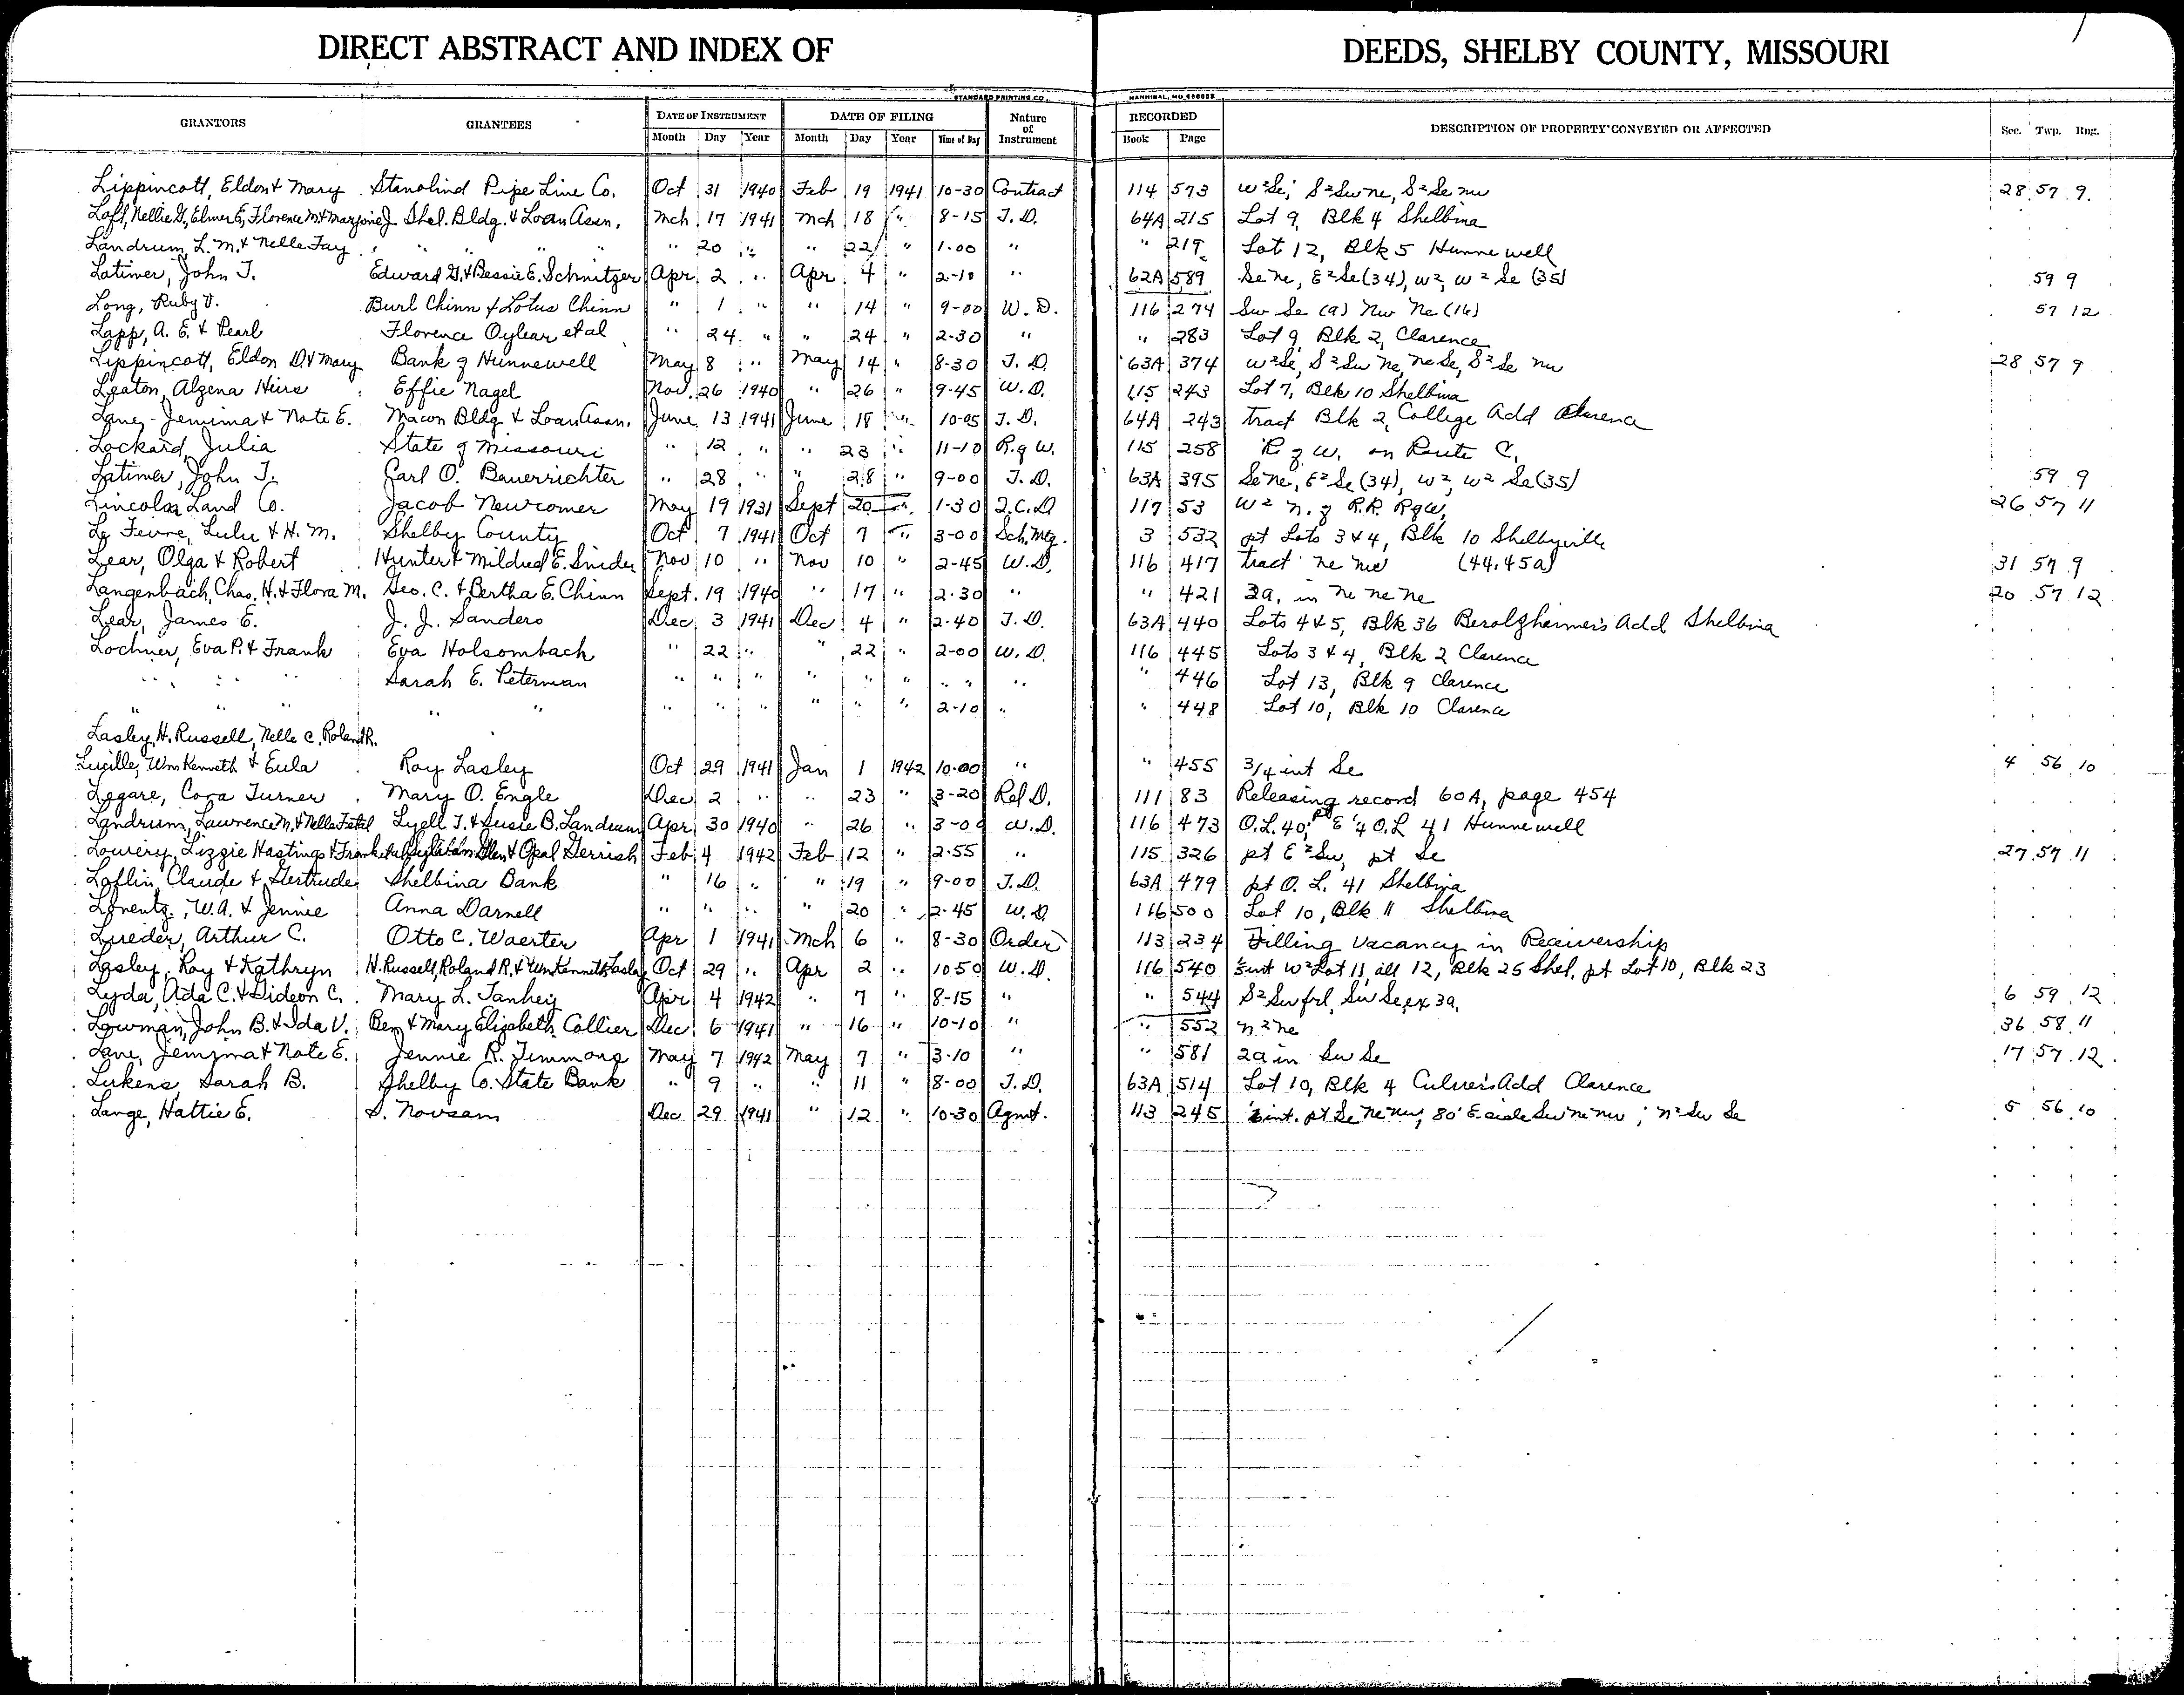 DIRECT ABSTRACT AND INDEX OF DEEDS, SHELBY COUNTY, MISSOURI
STANDARD PRINTING CO., HANNIBAL, MO.
GRANTORS GRANTEES DATE OF INSTRUMENT DATE OF FILING Nature of Instrument RECORDED DESCRIPTION OF PROPERTY CONVEYED OR AFFECTED Sec. Twp. Rng.
Month Day Year Month Day Year Time of Day Book Page
Lippincott, Eldon & Mary Stanolind Pipe Line Co. Oct 31 1940 Feb 19 1941 10-30 Contract 114 573 W²Se; S²Swne, S²Se nw 28 57 9
Loft, Nellie G, Elmer E, Florence M & Marjorie J Shel. Bldg. & Loan Assn. Mch 17 1941 Mch 18 " 8-15 T.D. 64A 215 Lot 9, Blk 4 Shelbina
Landrum, L. M. & Nelle Fay " " " " " 20 " " 22 " 1.00 " " 219 Lot 12, Blk 5 Hunnewell
Latimer, John T. Edward G. & Bessie E. Schnitzer Apr 2 " Apr 4 " 2-10 " 62A 589 Se ne, E²Se (34), W², W² Se (35) 59 9
Long, Ruby V. Burl Chinn & Lotus Chinn " 1 " " 14 " 9-00 W.D. 116 274 Sw Se (9) Nw Ne (16) 57 12
Lapp, A. E. & Pearl Florence Oylear et al " 24 " " 24 " 2-30 " " 283 Lot 9, Blk 2, Clarence
Lippincott, Eldon D. & Mary Bank of Hunnewell May 8 " May 14 " 8-30 T.D. 63A 374 W²Se, S²Sw Ne, Ne Se, S²Se Nw 28 57 9
Leaton, Algena Heirs Effie Nagel Nov. 26 1940 " 26 " 9-45 W.D. 115 243 Lot 7, Blk 10 Shelbina
Lane, Jemima & Note E. Macon Bldg & Loan Assn. June 13 1941 June 18 " 10-05 T.D. 64A 243 tract Blk 2, College Add Clarence
Lockard, Julia State of Missouri " 12 " " 23 " 11-10 R. of W. 115 258 R of W. on Route C.
Latimer, John T. Carl O. Bauerrichter " 28 " " 28 " 9-00 T.D. 63A 395 Se ne, E²Se (34), W², W² Se (35) 59 9
Lincoln Land Co. Jacob Newcomer May 19 1931 Sept 20 " 1-30 Q.C.D 117 53 W² N. of R.R. RofW, 26 57 11
Le Fevre, Lulu & H. M. Shelby County Oct 7 1941 Oct 7 " 3-00 Sch. Mtg. 3 532 pt Lots 3 & 4, Blk 10 Shelbyville
Lear, Olga & Robert Hunter & Mildred E. Snider Nov 10 " Nov 10 " 2-45 W.D. 116 417 tract ne nw (44.45a) 31 57 9
Langenbach, Chas. H. & Flora M. Geo. C. & Bertha E. Chinn Sept. 19 1940 " 17 " 2.30 " " 421 2a. in ne ne ne 20 57 12
Lear, James E. J. J. Sanders Dec 3 1941 Dec 4 " 2-40 T.D. 63A 440 Lots 4 & 5, Blk 36 Berolzheimer's Add Shelbina
Lochner, Eva P. & Frank Eva Holsombach " 22 " " 22 " 2-00 W.D. 116 445 Lots 3 & 4, Blk 2 Clarence
" " " Sarah E. Peterman " " " " " " " " " 446 Lot 13, Blk 9 Clarence
" " " " " " " " " " " 2-10 " " 448 Lot 10, Blk 10 Clarence
Lasley, H. Russell, Nelle C, Roland R.
Lucille, Wm Kenneth & Eula Roy Lasley Oct 29 1941 Jan 1 1942 10-00 " " 455 3/4 int Se 4 56 10
Legare, Cora Turner Mary O. Engle Dec 2 " " 23 " 3-20 Rel D. 111 83 Releasing record 60A, page 454
Landrum, Lawrence M. & Nelle F et al Lyell T. & Susie B. Landrum Apr 30 1940 " 26 " 3-00 W.D. 116 473 O.L. 40; pt E ¼ O.L 41 Hunnewell
Lowery, Lizzie Hastings & Frank Glen & Opal Gerrish Feb 4 1942 Feb 12 " 2.55 " 115 326 pt E²Sw, pt Se 27 57 11
Laflin, Claude & Gertrude Shelbina Bank " 16 " " 19 " 9-00 T.D. 63A 479 pt O. L. 41 Shelbina
Lorentz, W.A. & Jennie Anna Darnell " " " " 20 " 2-45 W.D. 116 500 Lot 10, Blk 11 Shelbina
Lueder, Arthur C. Otto C. Waerter Apr 1 1941 Mch 6 " 8-30 Order 113 234 Filling Vacancy in Receivership
Lasley, Roy & Kathryn H. Russell, Roland R. & Wm Kenneth Lasley Oct 29 " Apr 2 " 10 50 W.D. 116 540 int W²Lot 11, all 12, Blk 25 Shel, pt Lot 10, Blk 23
Lyda, Ada C. & Gideon C. Mary L. Tanhey Apr 4 1942 " 7 " 8-15 " " 544 S²Sw frl, Sw Se, ex 3a. 6 59 12
Lowman, John B. & Ida V. Ben & Mary Elizabeth Collier Dec 6 1941 " 16 " 10-10 " " 552 N²ne 36 58 11
Lane, Jemima & Note E. Jennie R. Timmons May 7 1942 May 7 " 3-10 " " 581 2a in Sw Se 17 57 12
Lukens, Sarah B. Shelby Co. State Bank " 9 " " 11 " 8-00 T.D. 63A 514 Lot 10, Blk 4 Culver's Add Clarence
Lange, Hattie E. S. Novsam Dec 29 1941 " 12 " 10-30 Agmt. 113 245 int. pt Se Ne Nw, 80' E. side Sw ne nw ; N² Sw Se 5 56 10